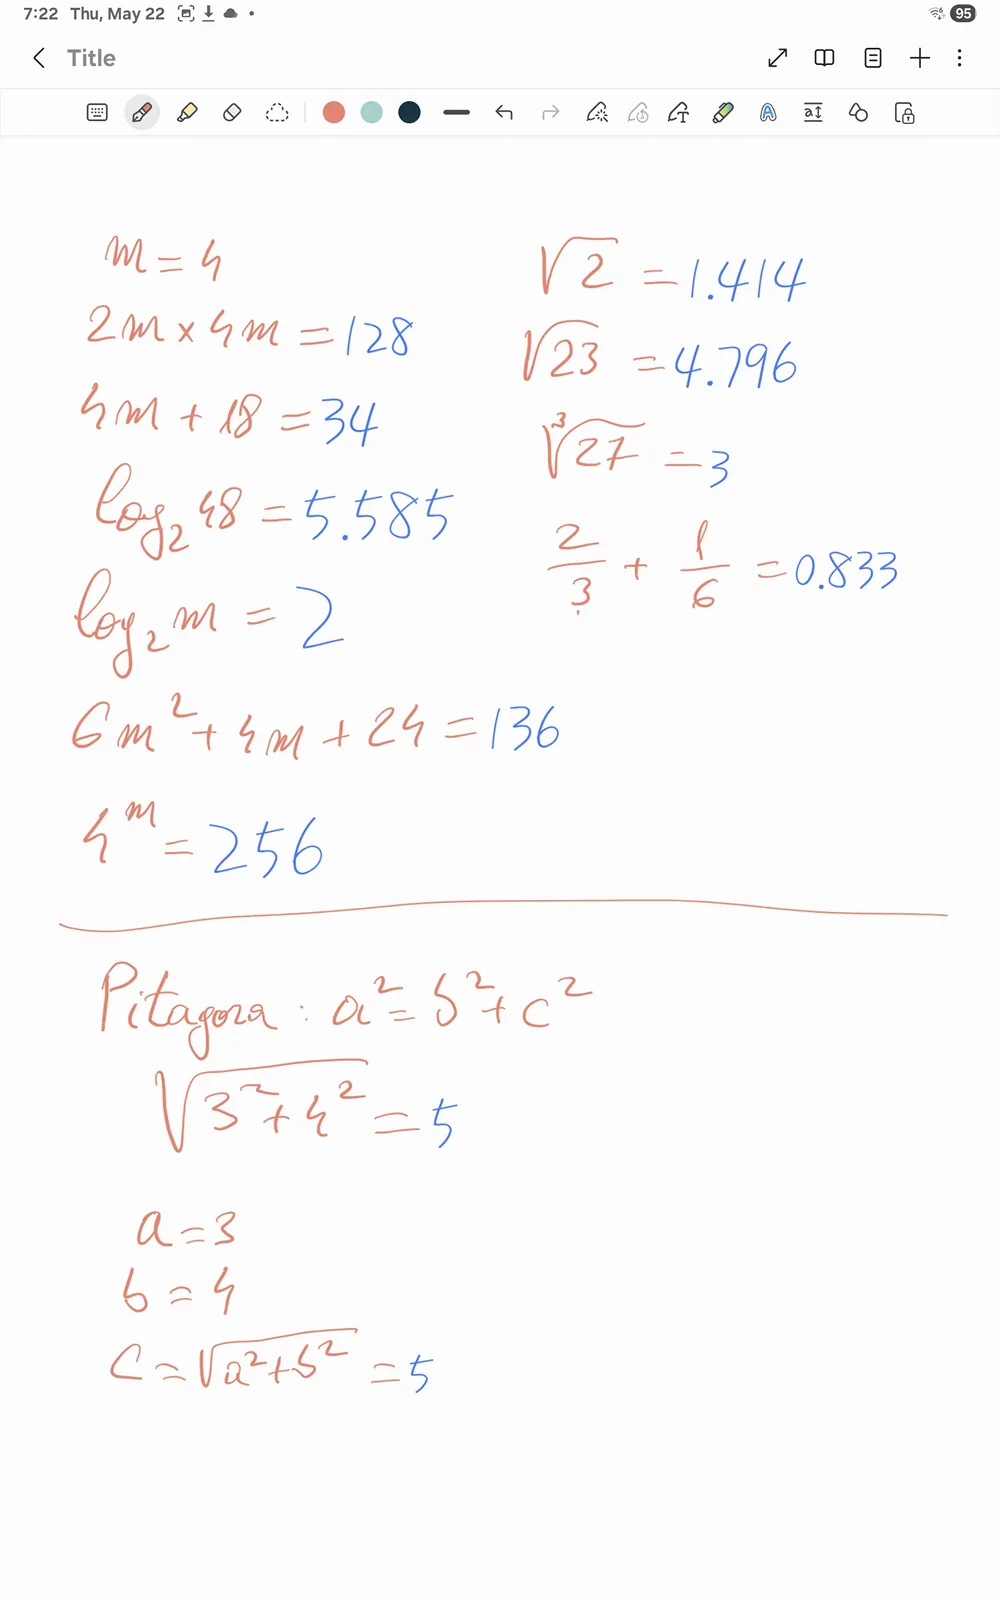 7:22 Thu, May 22
95
Title
m = 4
2m × 4m = 128
4m + 18 = 34
log₂ 48 = 5.585
log₂ m = 2
6m² + 4m + 24 = 136
4ᵐ = 256
√2 = 1.414
√23 = 4.796
³√27 = 3
2/3 + 1/6 = 0.833
Pitagora : a² = b² + c²
√(3² + 4²) = 5
a = 3
b = 4
c = √(a² + b²) = 5